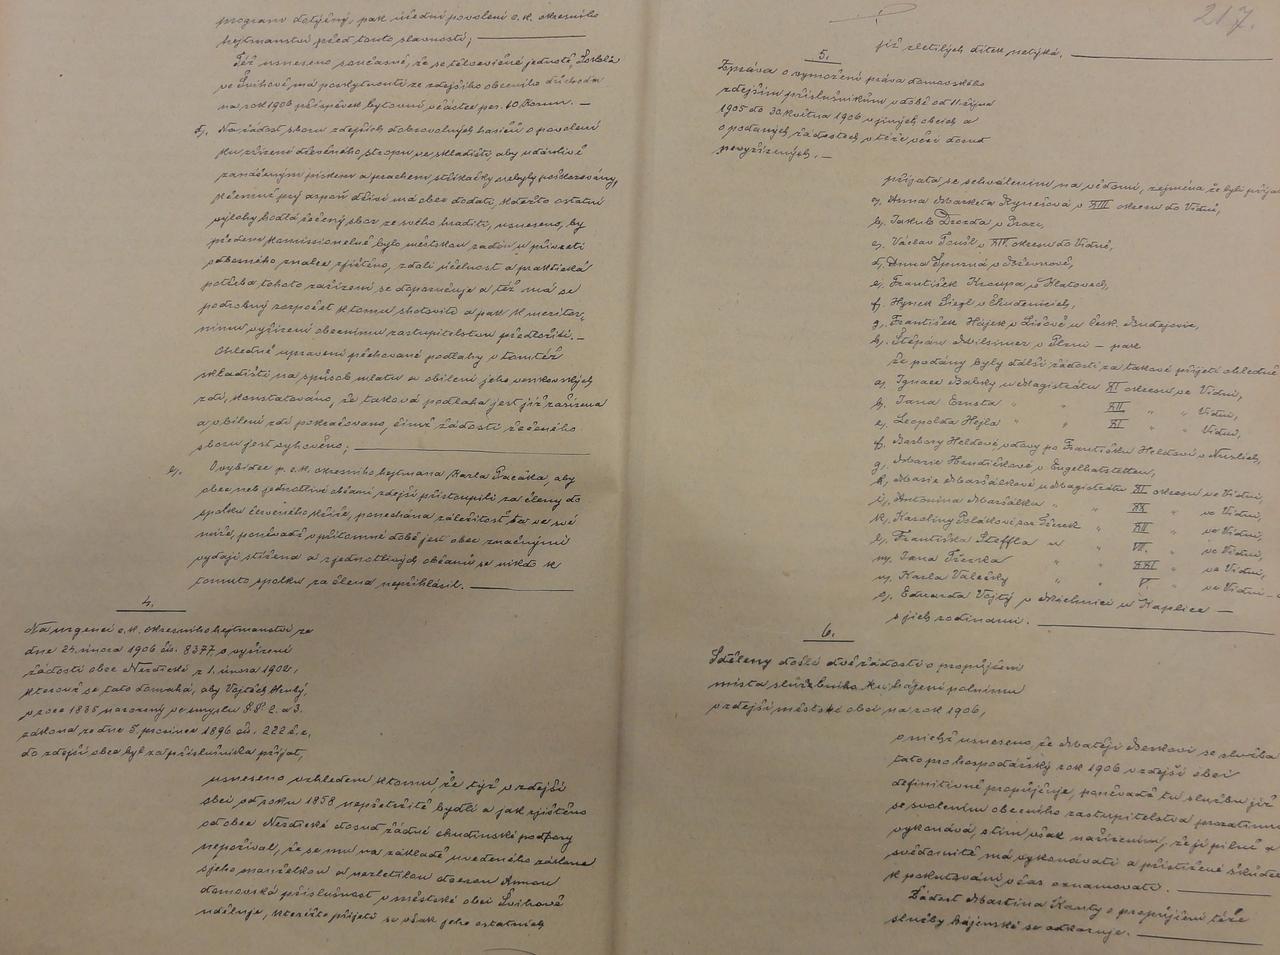 program dotýčný, pak úřední povolení c. k. okresního
hejtmanství před touto slavností;
Též usneseno současně, že se tělocvičné jednotě "Sokol"
ve Švihově má poskytnouti ze zdejšího obecního důchodu
na rok 1906 příspěvek bytovní v částce per. 40 Korun. —
d., Na žádost sboru zdejších dobrovolných hasičů o povolení
ku zřízení dřevěného stropu ve skladišti, aby udánlivě
zanášeným pískem a prachem stříkačky nebyly poškozovány,
k čemuž prý aspoň dříví má obec dodati, kdežto ostatní
výlohy hodlá řečený sbor ze svého hraditi, usneseno, by
předem komissionelně bylo městskou radou u přivzetí
odborného znalce zjištěno, zdali účelnost a praktická
potřeba tohoto zařízení se doporučuje a též má se
podrobný rozpočet k tomu zhotoviti a pak k meritor-
nímu vyřízení obecnímu zastupitelstvu předložiti. —
Ohledně upravení pěchované podlahy v tomtéž
skladišti na způsob mlatu a obílení jeho venkovských
zdí, konstatováno, že taková podlaha jest již zařízena
a v bílení zdí pokračováno, čímž žádosti řečeného
sboru jest vyhověno;
e., O vybídce p. c. k. okresního hejtmana Karla Pacáka, aby
obec neb jednotliví občané zdejší přistoupili za členy do
spolku červeného kříže, ponechána záležitost ta ve své
míře, poněvadž v přítomné době jest obec značnými
vydaji stížena a z jednotlivých občanů se nikdo k
tomuto spolku za člena nepřihlásil.
4.
Na urgenci c. k. okresního hejtmanství ze
dne 24. února 1906 čís. 8377 o vyřízení
žádosti obce Nezdické z 1. února 1902,
kterouž se tato domáhá, aby Vojtěch Hrubý,
v roce 1835 narozený ve smyslu §.§. 2. a 3.
zákona ze dne 5. prosince 1896 čís. 222 ř. z.
do zdejší obce byl za příslušníka přijat,
usneseno vzhledem k tomu, že týž v zdejší
obci od roku 1858 nepřetržitě bydlí a jak zjištěno
od obce Nezdické dosud žádné chudinské podpory
nepožíval, že se mu na základě uvedeného zákona
s jeho manželkou a nezletilou dcerou Annou
domovská příslušnost v městské obci Švihově
uděluje, kteréžto přijetí se však jeho ostatních
217.
již zletilých dítek netýká.
5.
Zpráva o vymožení práva domovského
zdejším příslušníkům v době od 11. října
1905 do 30. května 1906 v jiných obcích a
o podaných žádostech v téže věci dosud
nevyřízených. —
přijata se schválením na vědomí, zejména že byli přijati
a., Anna Marketa Kynešová v XIII okresu do Vídně,
b., Jakub Drozda v Praze,
c., Václav Toušl v XIV. okresu do Vídně,
d., Anna Spurná v Břevnově,
e., František Kroupa v Klatovech,
f., Hynek Siegl v Chudenicích,
g., František Hájek v Lišově u Česk. Budějovic,
h., Štěpán Milsimer v Plzni — pak
že podány byly další žádosti za takové přijetí ohledně
a., Ignace Babky u Magistrátu XI okresu ve Vídni,
b., Jana Ernsta " " XII. " " Vídni,
c., Leopolda Hejla " " XI. " " Vídni,
f., Barbory Heldové vdovy po Františku Heldovi v Nuslích,
g., Marie Hendlíčkové v Engelhatstetten,
h., Marie Maršálkové u Magistrátu XI okresu ve Vídni,
i., Antonína Maršálka " " XX. " ve Vídni,
k., Karoliny Polákové " XII " ve Vídni,
l., Františka Šteffla u " VII. " ve Vídni,
m., Jana Třeska " " XXI " ve Vídni,
n., Karla Válečky " " V. " ve Vídni —
o., Eduarda Vojty v Michnici u Kaplice —
s jich rodinami.
6.
Sděleny došlé dvě žádosti o propůjčení
místa služebního ku hájení polnímu
v zdejší městské obci na rok 1906,
o nichž usneseno, že Matěji Benkovi se služba
tato pro hospodářský rok 1906 v zdejší obci
definitivně propůjčuje, poněvadž tu službu již
se svolením obecního zastupitelstva prozatímně
vykonává, s tím však nařízením, že jí pilně a
svědomitě má vykonávati a přistižené škůdce
k pokutování včas oznamovati.
Žádost Martina Kanty o propůjčení téže
služby hájenské se odkazuje.